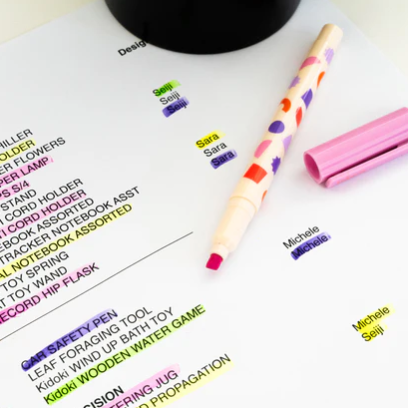 Design
Seiji
Seiji
Seiji
Sara
Sara
Sara
HILLER
OLDER
ER FLOWERS
PER LAMP
PS S/4
STAND
I CORD HOLDER
TI CORD HOLDER
EBOOK ASSORTED
TRACKER NOTEBOOK ASST
AL NOTEBOOK ASSORTED
TOY SPRING
T TOY WAND
RECORD HIP FLASK
Michele
Michele
CAR SAFETY PEN
LEAF FORAGING TOOL
Kidoki WIND UP BATH TOY
Kidoki WOODEN WATER GAME
Michele
Seiji
CISION
TERING JUG
D PROPAGATION